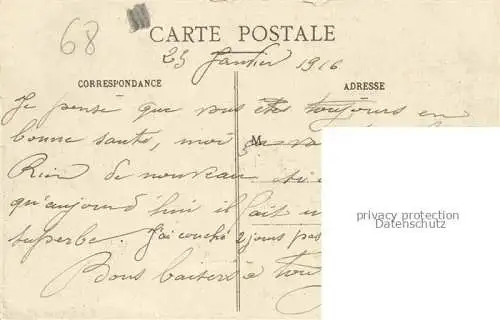 68
CARTE POSTALE
25 Janvier 1916
CORRESPONDANCE
ADRESSE
Je pense que vous êtes toujours en
bonne santé, moi
M
Rien de nouveau ici
qu'aujourd'hui il fait u
superbe. J'ai couché 2 jours pas
Bons baisers à tou
privacy protection
Datenschutz